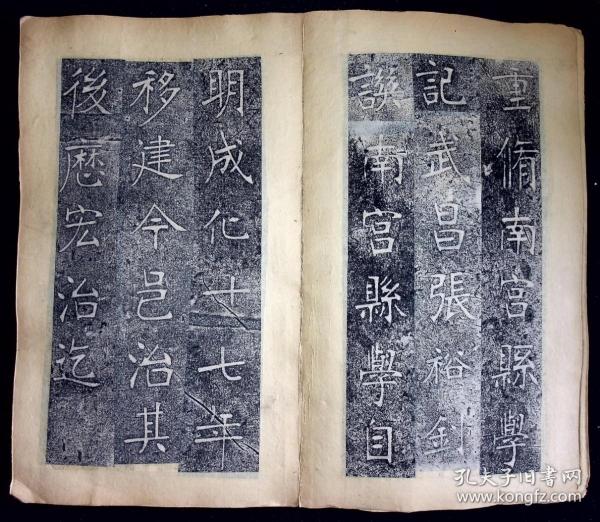 重脩南宮縣學
記武昌張裕釗
譔南宮縣學自
明成化十七年
移建今邑治其
後歷宏治迄
孔夫子旧书网
www.kongfz.com